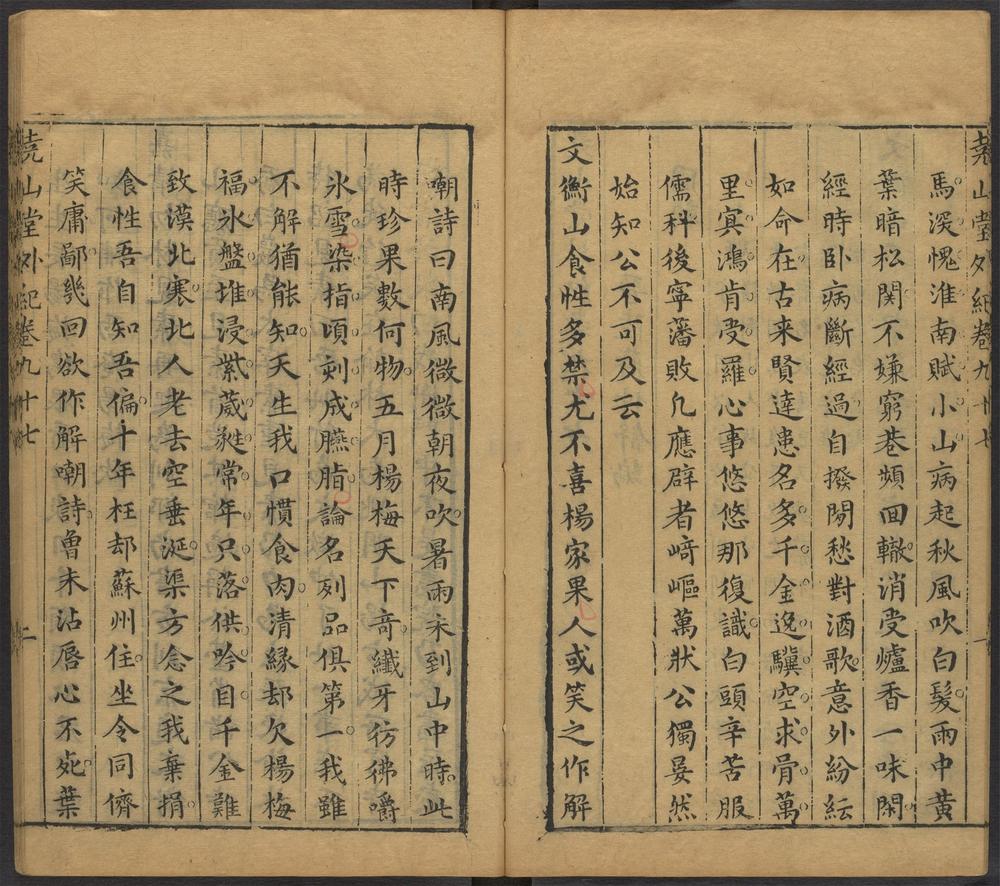 堯山堂外紀卷九十七　一
馬深愧淮南賦小山病起秋風吹白髮雨中黃
葉暗松關不嫌窮巷頻回轍消受爐香一味閑
經時臥病斷經過自撥閒愁對酒歌意外紛紜
如命在古來賢達患名多千金逸驥空求骨萬
里冥鴻肯受羅心事悠悠那復識白頭辛苦服
儒科後寧藩敗凡應辟者崎嶇萬狀公獨晏然
始知公不可及云
文衡山食性多禁尤不喜楊家果人或笑之作解
嘲詩曰南風微微朝夜吹暑雨未到山中時此
時珍果數何物五月楊梅天下竒纖牙彷彿嚼
氷雪染指頃刻成臙脂論名列品俱第一我雖
不解猶能知天生我口慣食肉清緣却欠楊梅
福氷盤堆浸紫葳蕤常年只落供吟目千金難
致漠北寒北人老去空垂涎渠方念之我棄捐
食性吾自知吾偏十年枉却蘇州住坐令同儕
笑庸鄙幾回欲作解嘲詩魯未沾唇心不死葉
堯山堂外紀卷九十七　二